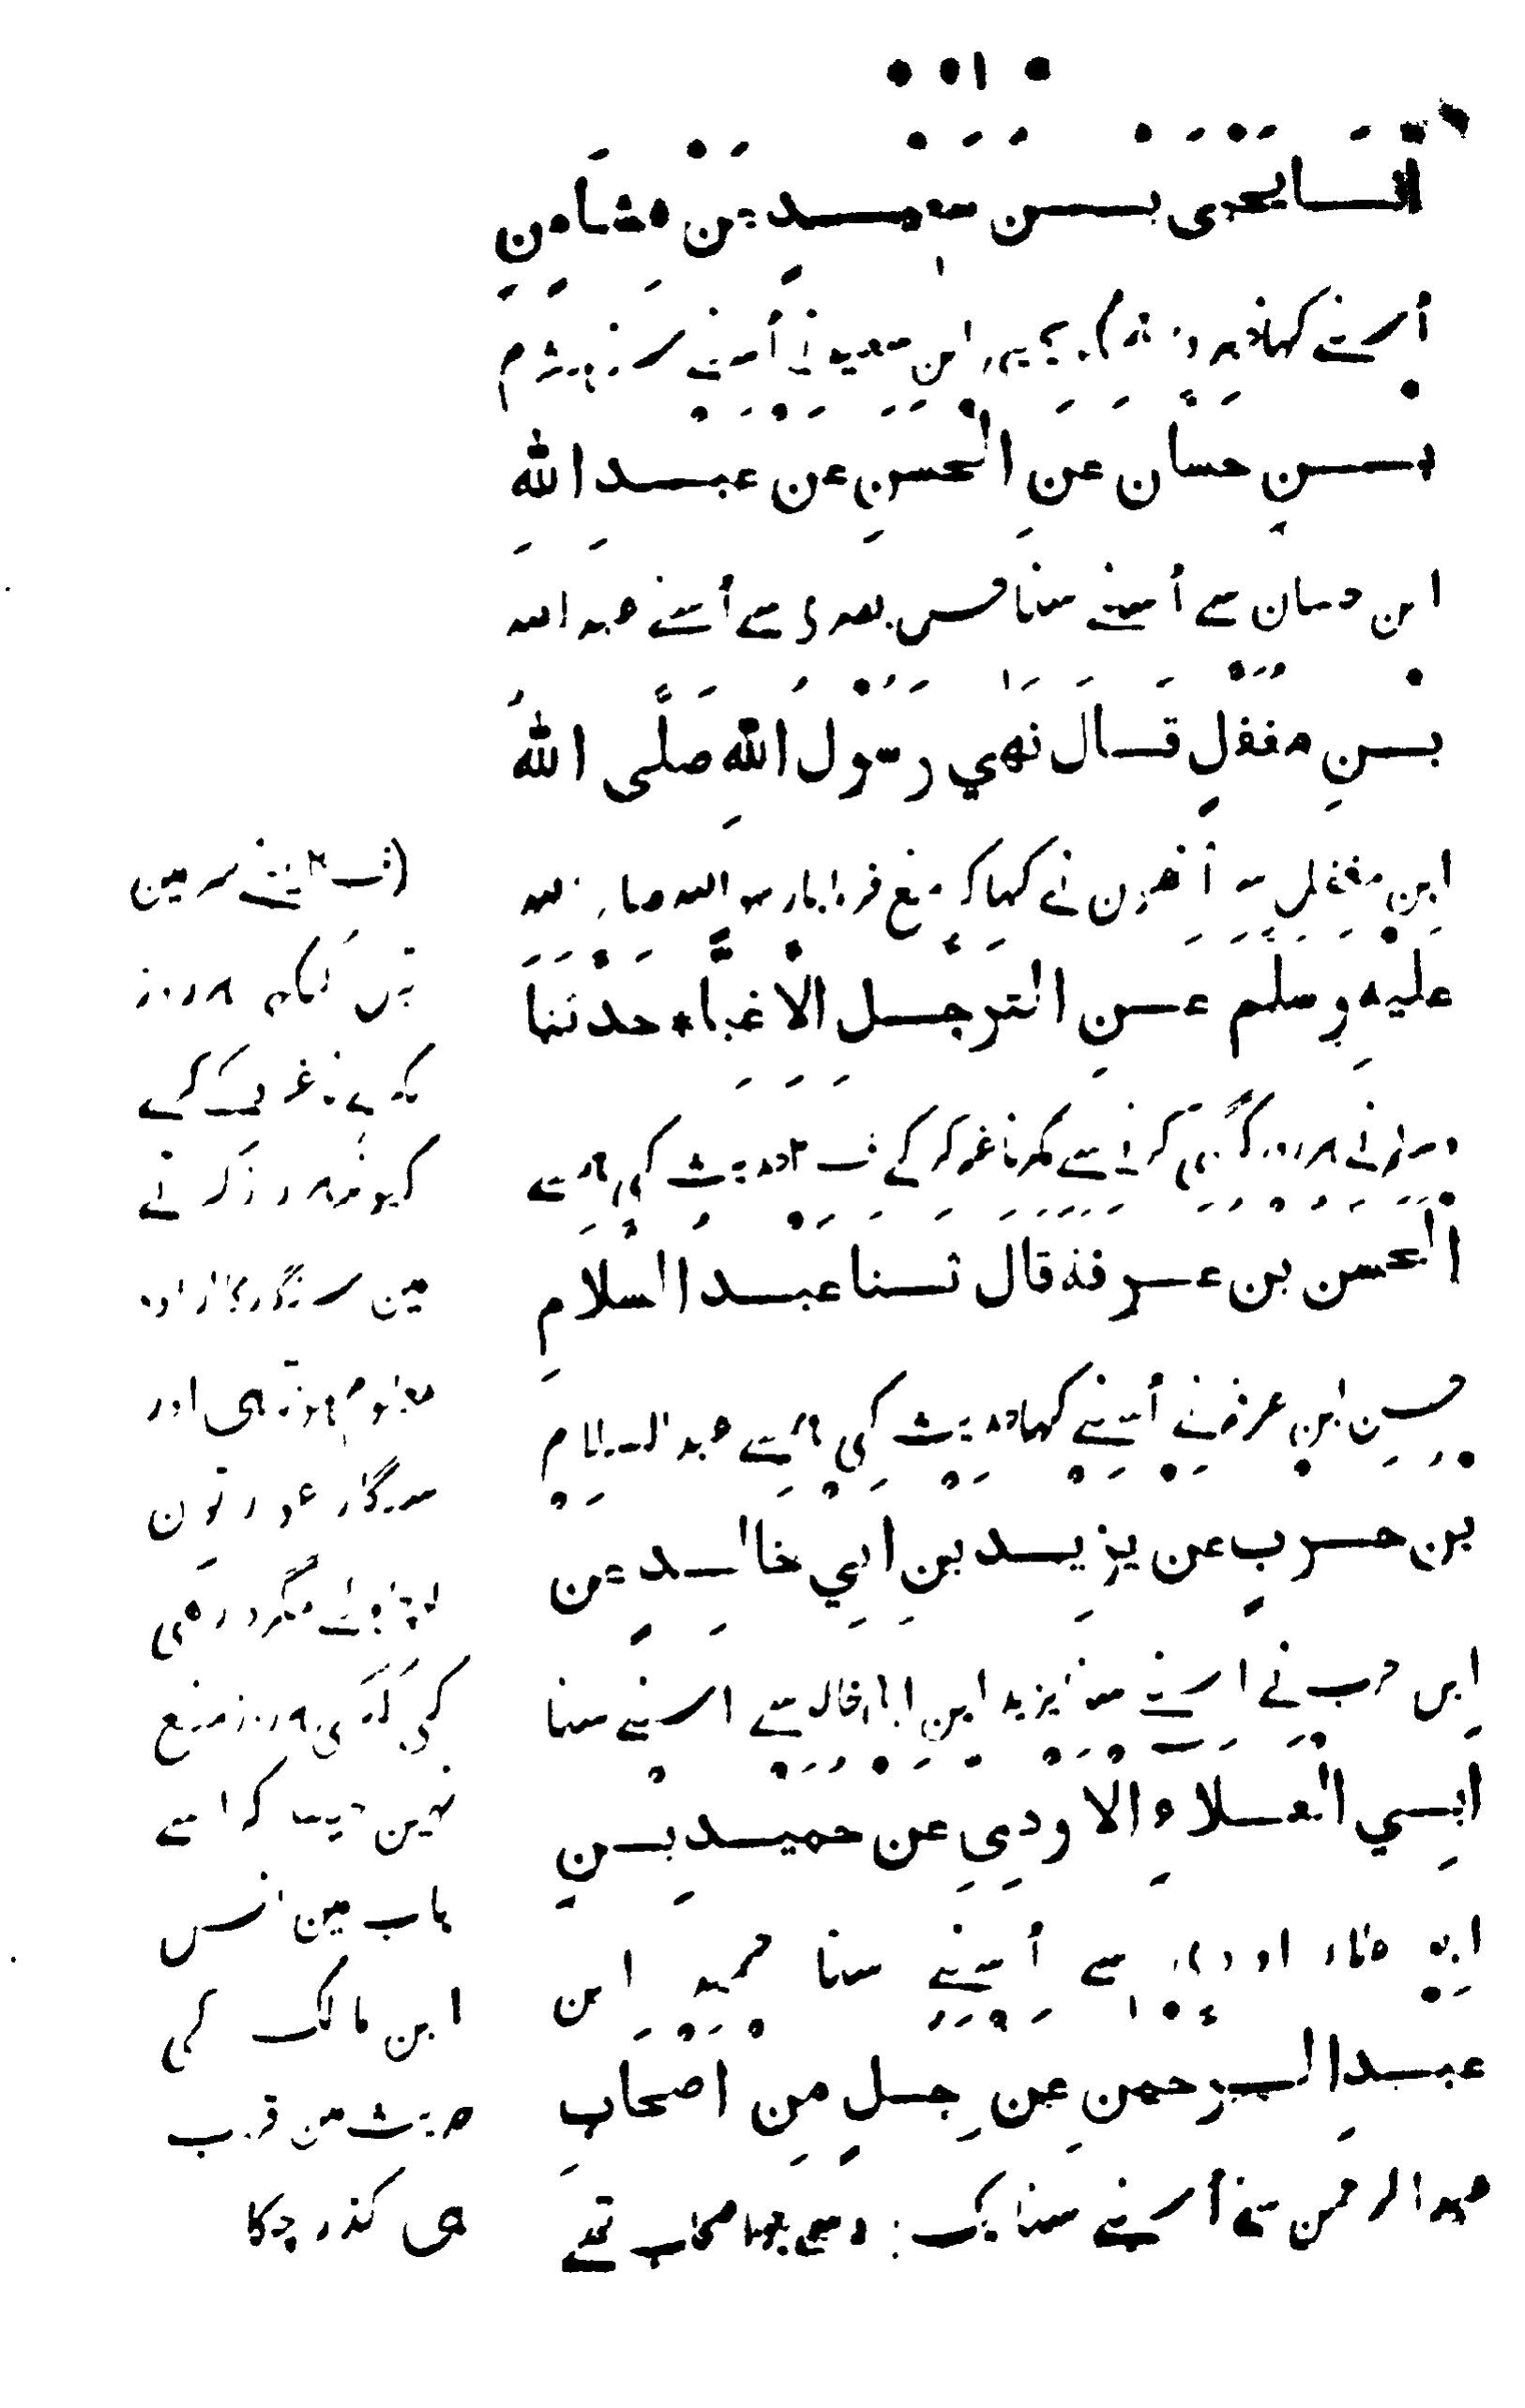 ثنا يحيى بن سعيد عن هشام
أسنے کہا ابن سعيد نے أسنے سنا ہشام
بن حسان عن الحسن عن عبد الله
ابن حسان سے أسنے سنا حسن بصری سے أسنے عبد الله
بن مغفل قال نهي رسول الله صلى الله
ابن مغفل سے أنھون نے کہا کہ منع فرمایا رسول الله صلی الله
عليه وسلم عن الترجل الا غبا * حدثنا
کنگھی کرنے سے مگر ناغہ کر کے ف ۲ حدیث کی ہمسے
الحسن بن عرفة قال ثنا عبد السلام
حسن ابن عرفہ نے أسنے کہا حدیث کی ہمسے عبد السلام
بن حرب عن يزيد بن ابي خالد عن
ابن حرب نے اسنے سنا یزید ابن ابی خالد سے اسنے سنا
ابي العلاء الاودي عن حميد بن
ابو علاء اودی سے أسنے سنا حمید ابن
عبد الرحمن عن رجل من اصحاب
عبد الرحمن سے أسنے سنا ایک اصحاب تھے
(ف ۲ یعنے سر مین
تیل ہر روز
کیونکہ ہر روز کرنے
مین سنگار زیادہ
معلوم ہوتا ہی اور
سنگار عورتون
مگر داڑھی
کی کنگھی ہر روز منع
نہین جیسا کہ اسے
باب مین انس
ابن مالک کی
حدیث مین قریب
ہی گذر چکا